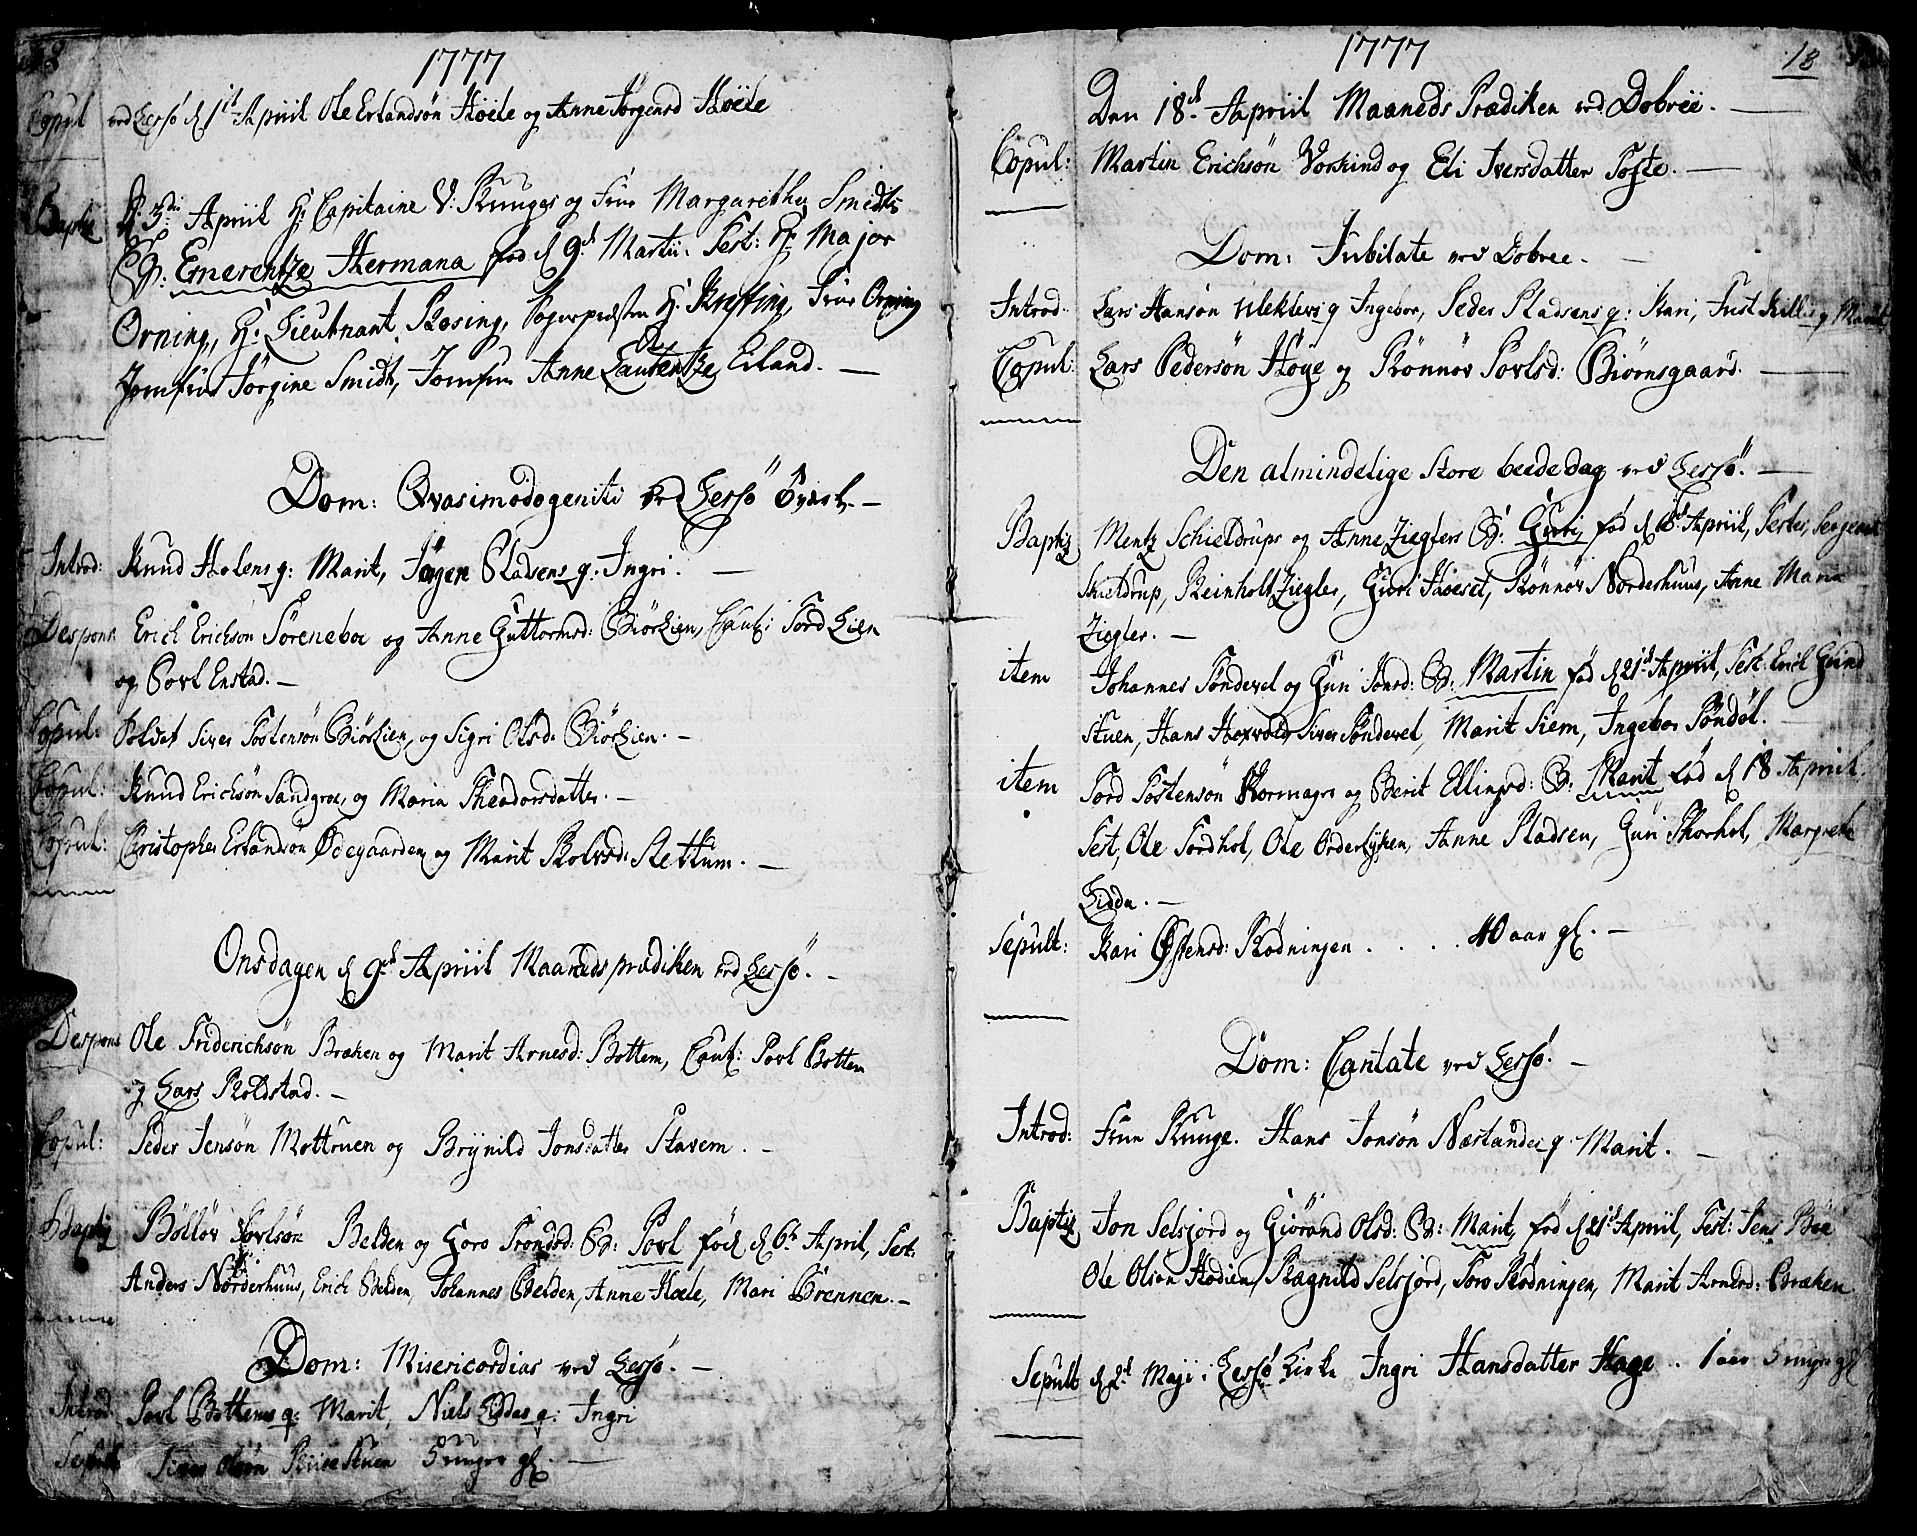 1777
Copul ved Lessø d 1st Apriil Ole Erlandsøn Høele og Anne Jørgensd Høele
Baptiz D. 3die Apriil Hr Capitaine V: Kruuges og Frue Margarethe Smidts
B: Emerentze Hermana fød d 9d Martii. Test: Hr Major
Orning, Hr Lieutnant Rosing, Sogneprestn Hr Krefting, Frue Orning
Jomfru Jørgine Smidt, Jomfru Anne Laurentze Eiland. —
Dom: Qvasimodogeniti ved Lessø —
Introd: Knud Holens q: Marit, Jøgen Pladsens q: Ingri. —
Despons Erich Erichsøn Søreneboe og Anne Guttormsd: Biørlien, Caut: Tord Lien
og Povl Enstad. —
Copul: Soldat Siver Tostensøn Biørlien og Sigri Olsd: Biørlien. —
Copul: Knud Erichsøn Sandgroe, og Maria Theodorsdatter. —
Copul: Christopher Erlandsøn Ødegaarden og Marit Rolvsd: Rettum. —
Onsdagen d 9d Apriil Maanedsprædiken ved Lessø. —
Despons Ole Friderichsøn Bræken og Marit Arnesd: Bottem, Caut: Povl Bottem
og Lars Roldstad. —
Copul: Peder Jensøn Mottruen og Brynild Jonsdatter Stavem. —
Baptiz Bølløv Povlsøn Belden og Goro Trondsd: B: Povl fød d 6d April, Test:
Anders Nørderhuus, Erich Belden, Johannes Belden, Anne Hoele, Mari Brennen. —
Dom: Misericordias ved Lessø. —
Introd Povl Bottems q: Marit, Niels Liddas q: Ingri
Sepult Siver Olsøn Riise Stuen 5 uuger gl. —
1777
18
Den 18d Apriil Maaneds Prædiken ved Dobree. —
Copul: Martin Erichsøn Vorkind og Eli Iversdatter Tofte. —
Dom: Jubilate ved Dobree. —
Introd: Lars Hansøn Uleklevs q Ingebor, Peder Pladsens q: Kari, Just Killis q Marit
Copul: Lars Pedersøn Høye og Rønnøv Povlsd: Biørnsgaard. —
Den almindelige Store beede dag ved Lessø. —
Baptiz Mentz Schieldrups og Anne Zieglers B: Guri, fød d Apriil, Testes, Sergeant
Skieldrup, Reinholt Ziegler, Guri Haveset, Rønnøv Nørderhuus, Anne Maria
Ziegler. —
item Johannes Søndevel og Guri Jonsd: B: Martin fød d 21d Apriil, Test: Erich Grind
stuen, Hans Hoxvold, Siver Søndevel, Marit Siem, Ingebor Søndøl. —
item Tord Tostensøn Kormagr og Berit Ellingsd: B: Marit fød d 18 Apriil.
Test, Ole Tordhol, Ole Orderlyken, Anne Pladsen, Guri Skorhol, Margrete
Lidda. —
Sepult: Kari Østensd: Rødningen . . . . 40 aar gl. —
Dom: Cantate ved Lessø. —
Introd: Frue Kruuge. Hans Jonsøn Næstandes q: Marit. —
Baptiz Jon Selsjord og Giørand Olsd: B: Marit, fød d 21d Apriil, Test: Jens Bøe
Ole Olson Hodien, Ragnild Selsjord, Toro Rødningen, Marit Arnesd: Bræken.
Sepult d 2d Maji i Lessø Kirke Ingri Hansdatter Hage . 1 aar 5 uuger gl